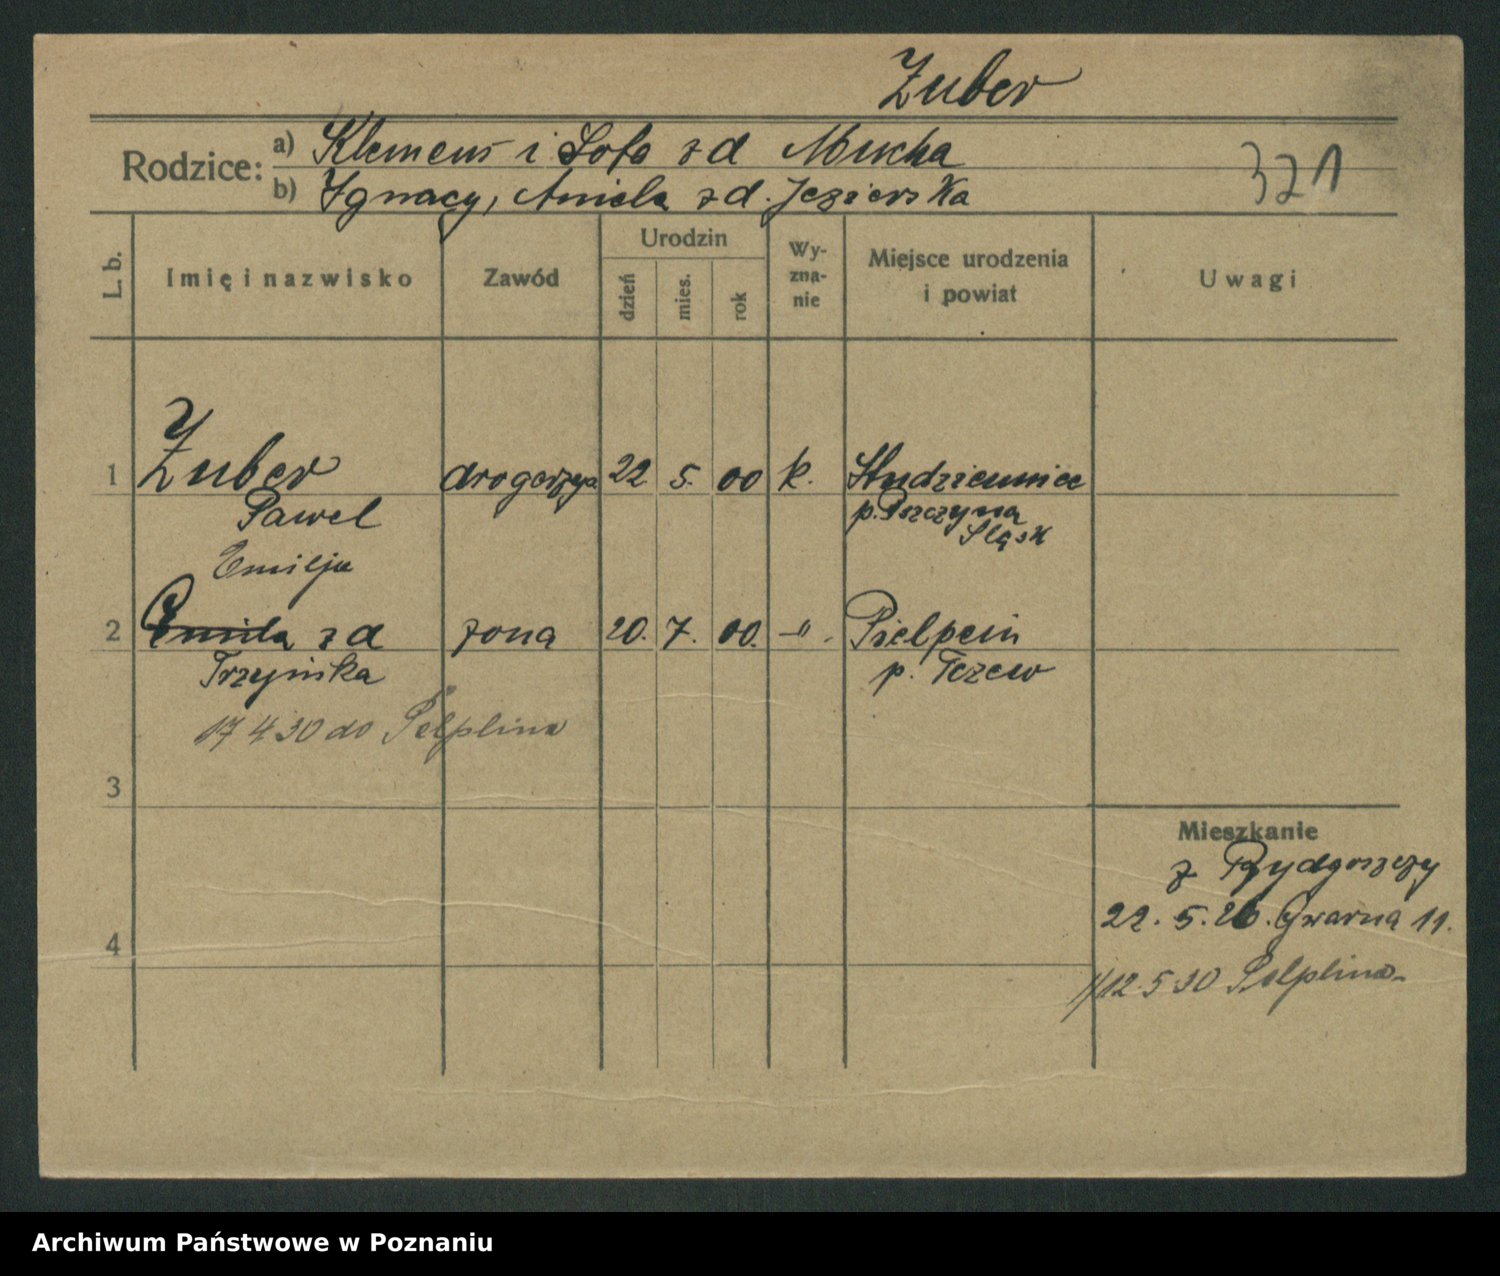 Zuber
Rodzice: a) Klemens i Zofa zd Mucha
b) Ignacy, Aniela zd. Jezierska
321
L. b.
Imię i nazwisko
Zawód
Urodzin
dzień
mies.
rok
Wy-
zna-
nie
Miejsce urodzenia
i powiat
Uwagi
1 Zuber drogerzysta 22 5. 00 k. Studzienice
Paweł p. Pszczyna
Śląsk
Emilja
2 Emila zd żona 20. 7. 00. -"-. Pielpein
Trzyińka p. Tczew
17 4 30 do Pelplina
3
Mieszkanie
z Bydgoszczy
22. 5. 26. Gwarna 11.
4
12.5 30 Pelplina
Archiwum Państwowe w Poznaniu